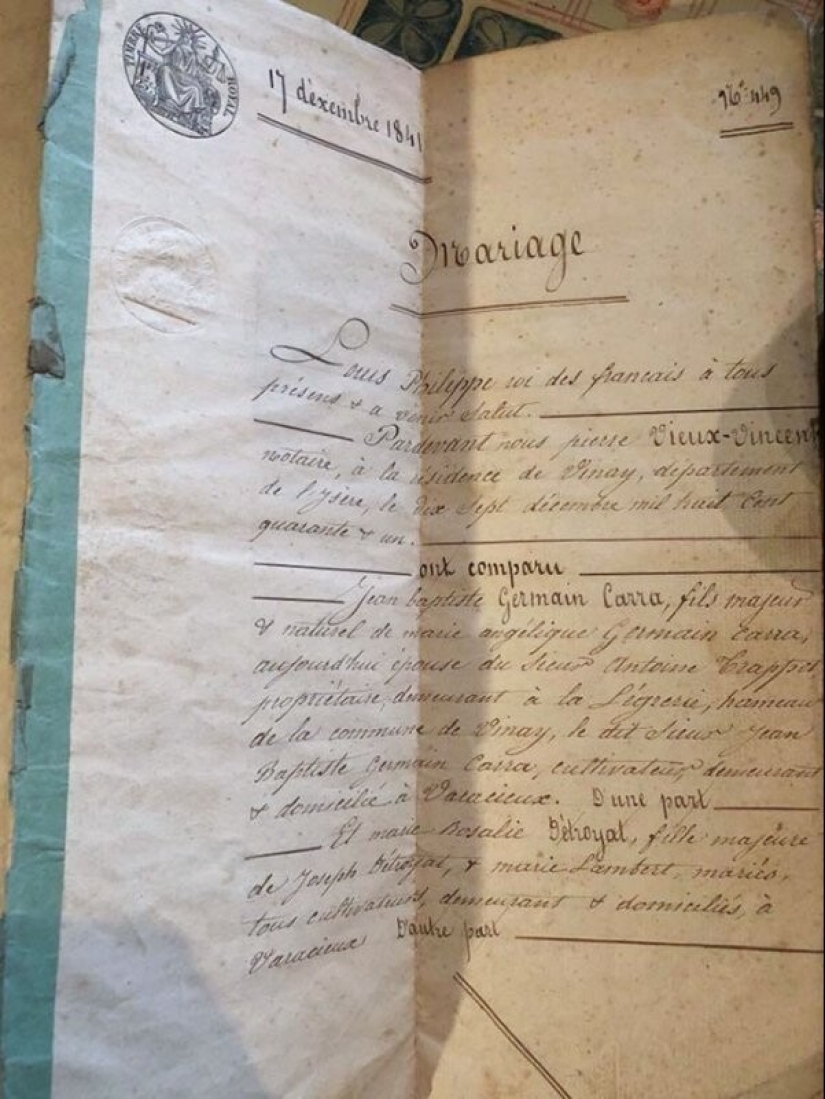 TIMBRE ROYAL
17 décembre 1841
N° 449
Mariage
Louis Philippe roi des francais à tous
présens & a venir Salut.
Pardevant nous pierre Vieux-Vincent
notaire, à la résidence de Vinay, département
de l'ysère, le dix Sept décembre mil huit Cent
quarante & un.
ont comparu
Jean baptiste Germain Carra, fils majeur
& naturel de marie angélique Germain Carra,
aujourd'hui épouse du Sieur Antoine
propriétaire, demeurant à la Légrerie, hameau
de la commune de Vinay, le dit Sieur Jean
Baptiste Germain Carra, cultivateur, demeurant
& domicilié à Varacieux. D'une part
Et marie Rosalie Détroyat, fille majeure
de Joseph Détroyat, & marie Lambert, mariés,
tous cultivateurs, demeurant & domiciliés, à
Varacieux D'autre part